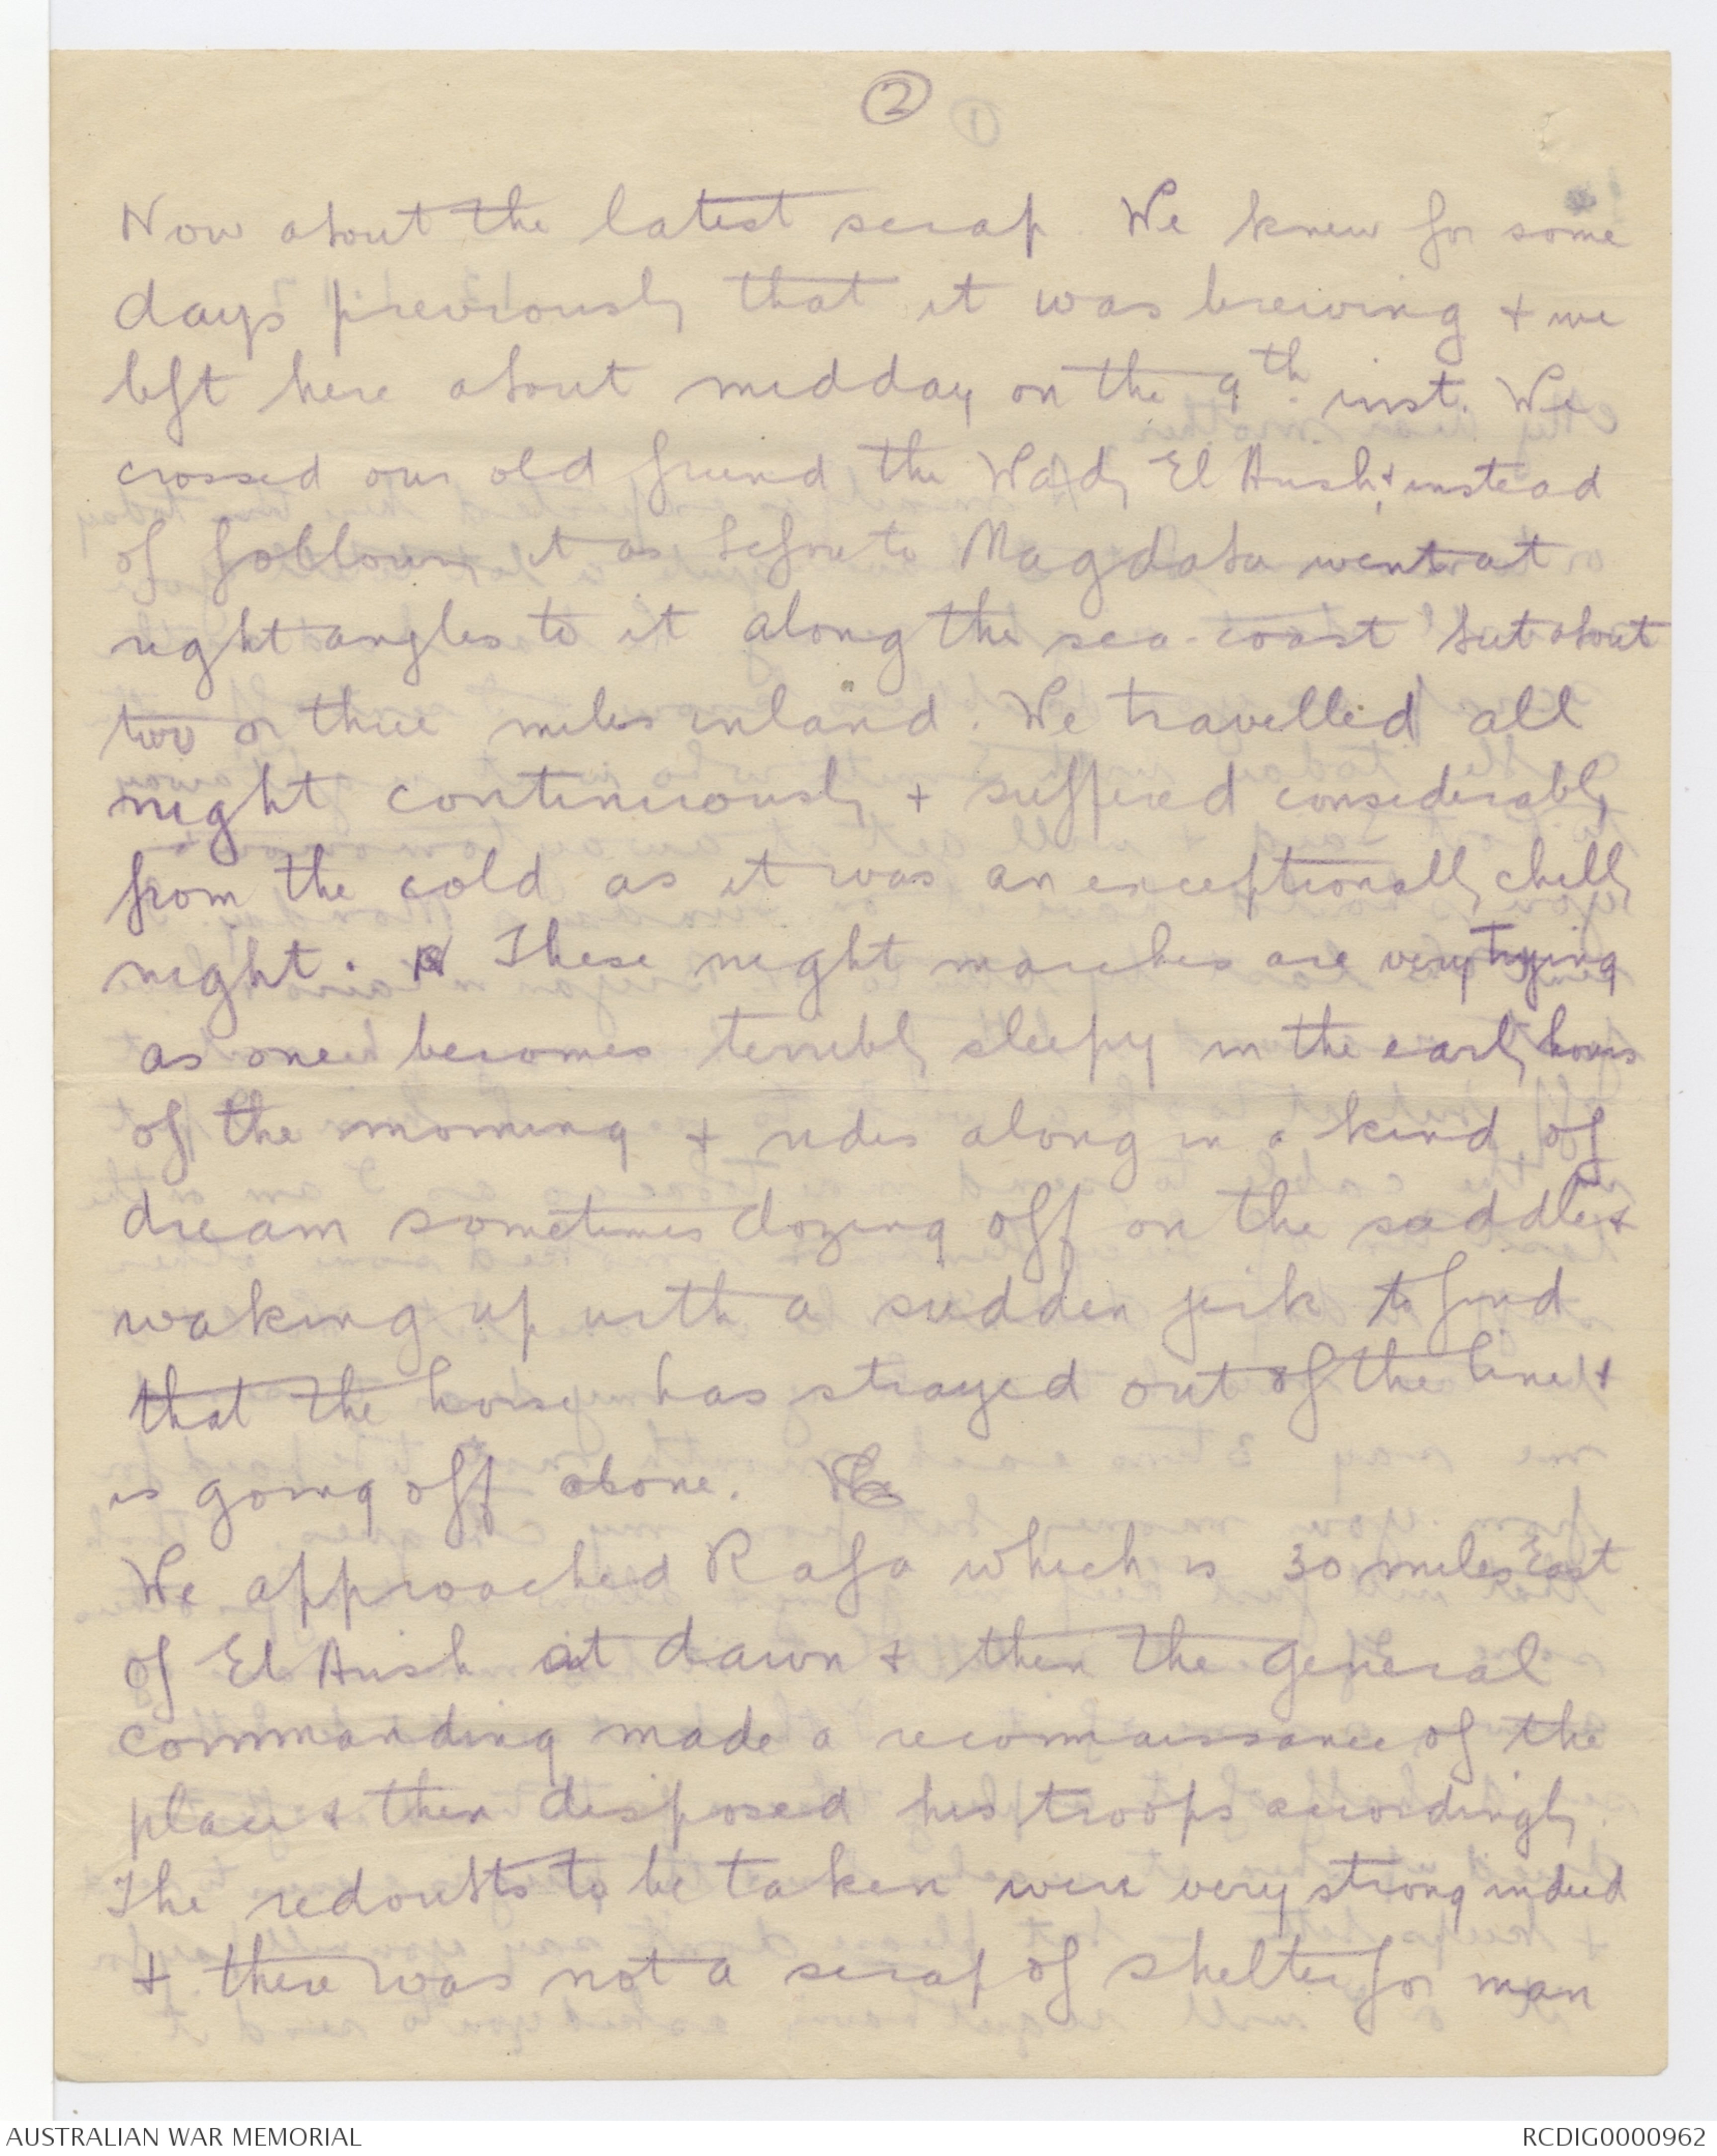 2
Now about the latest scrap. We knew for some
days previously that it was brewing + we
left here about midday on the 9th. inst. We
crossed our old friend the Wady El Arish, + instead
of following it as before to Magdaba went at
right angles to it along the sea-coast but about
two or three miles inland. We travelled all
night continuously + suffered considerably
from the cold as it was an exceptionally chilly
night. These night marches are very trying
as one becomes terribly sleepy in the early hours
of the morning + rides along in a kind of
dream sometimes dozing off on the saddle +
waking up with a sudden jerk to find
that the horse has strayed out of the line +
is going off alone. We
We approached Rafa which is 30 miles East
of El Arish at dawn + then the general
commanding made a reconnaissance of the
place + then disposed his troops accordingly.
The redoubts to be taken were very strong indeed
+ there was not a scrap of shelter for man
AUSTRALIAN WAR MEMORIAL
RCDIG0000962